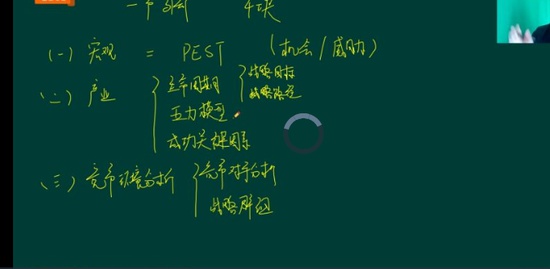 (一) 宏观 = PEST (机会/威胁)
(二) 产业
生命周期
战略目标
战略路径
五力模型
成功关键因素
(三) 竞争环境分析
竞争对手分析
战略群组